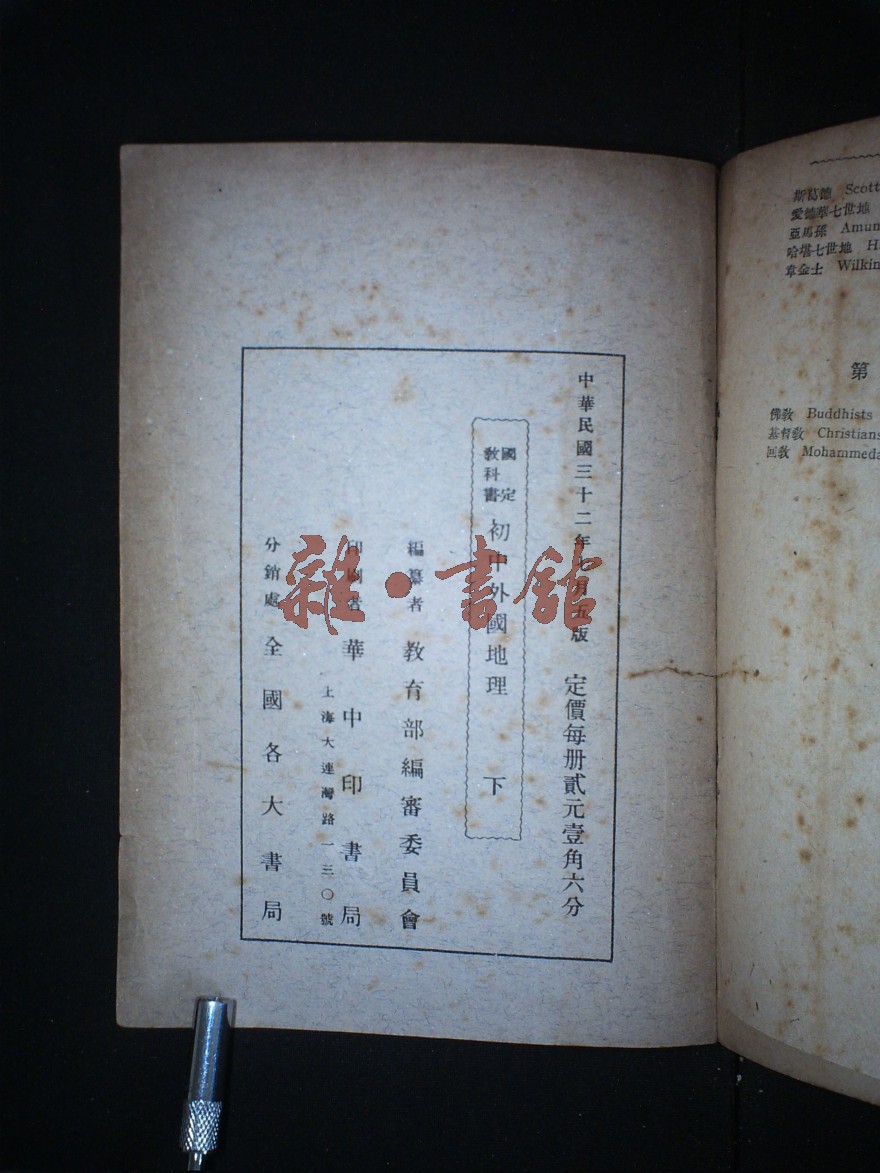 中華民國三十二年七月五版 定價每册貳元壹角六分
國定
教科書
初中外國地理 下
編纂者 教育部編審委員會
印刷者 華中印書局
上海大連灣路一三〇號
分銷處 全國各大書局
雜·書館
斯葛德 Scott
愛德華七世地
亞馬孫 Amun
哈堪七世地 H
韋金士 Wilkin
第
佛敎 Buddhists
基督敎 Christians
回敎 Mohammeda